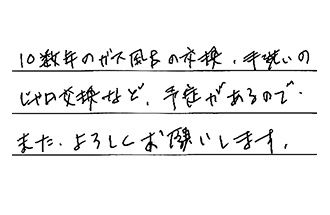 10数年のガス風呂の交換、手洗いの
じゃ口交換など、予定があるので、
また、よろしくお願いします。